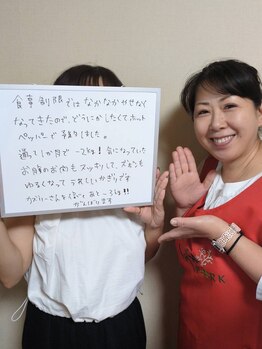 食事制限ではなかなかやせなく
なってきたので、どうにかしたくてホット
ペッパーで予約しました。
通って1か月で −2kg！気になっていた
お腹のお肉もスッキリして、ズボンも
ゆるくなってうれしいかぎりです
さんを
あと −3kg!!
がんばります